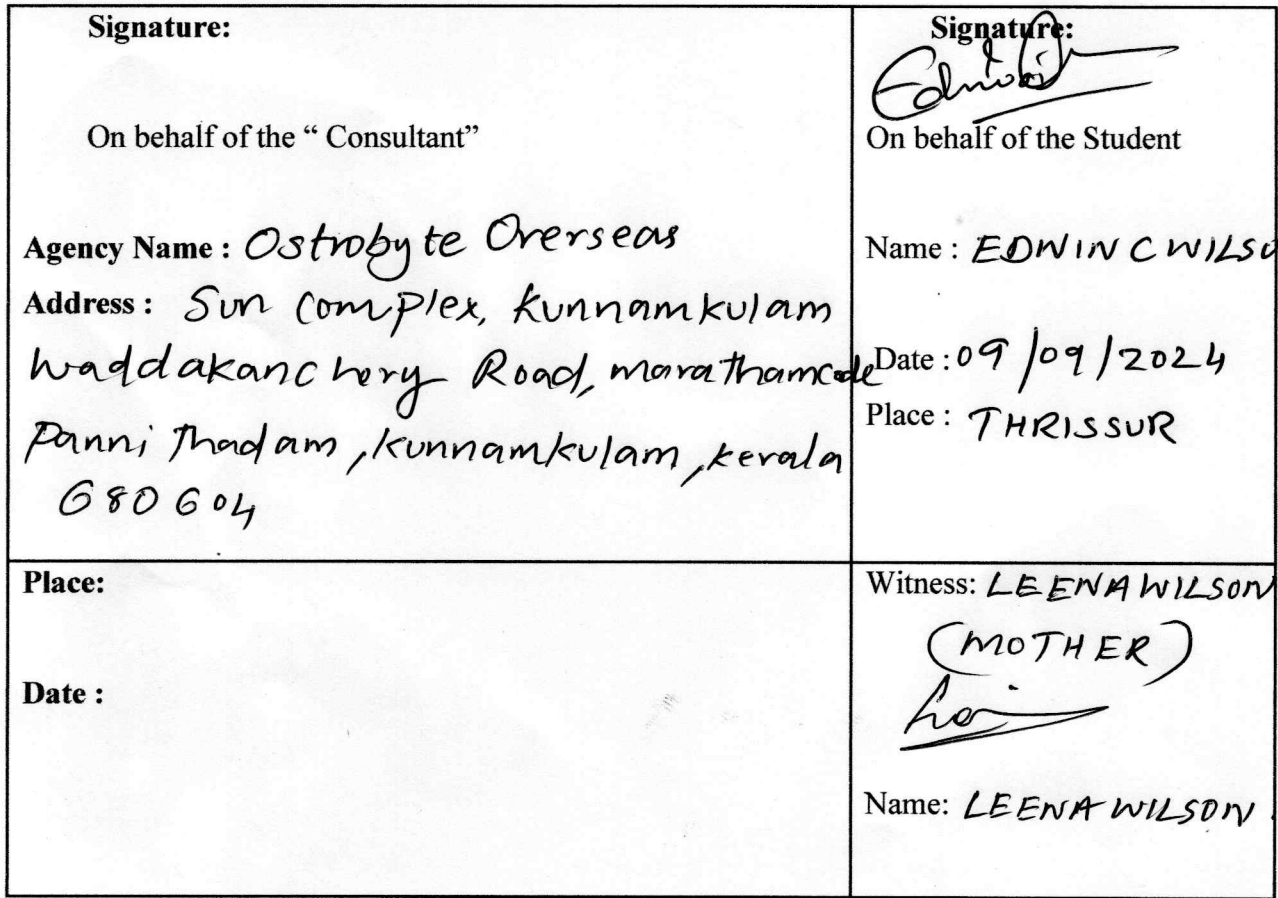 Signature:
On behalf of the “ Consultant”
Agency Name : Ostrobyte Overseas
Address : Sun complex, Kunnamkulam
Waddakanchery Road, marathamcode
Panni Thadam, Kunnamkulam, Kerala
680604
Signature:
Edwin
On behalf of the Student
Name : EDWIN C WILSO
Date : 09/09/2024
Place : THRISSUR
Place:
Date :
Witness: LEENA WILSON
(MOTHER)
Name: LEENA WILSON